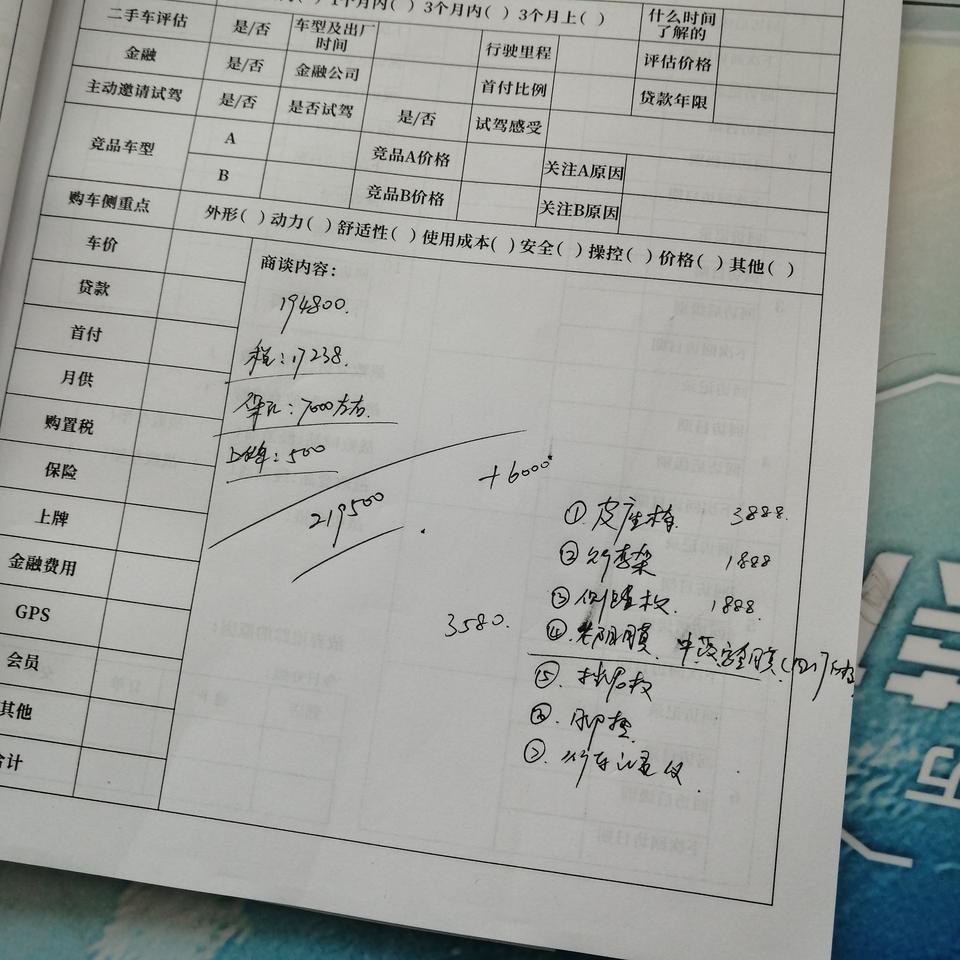 1个月内( ) 3个月内( ) 3个月上( ) 什么时间了解的
二手车评估 是/否 车型及出厂时间 行驶里程 评估价格
金融 是/否 金融公司 首付比例 贷款年限
主动邀请试驾 是/否 是否试驾 是/否 试驾感受
竞品车型 A 竞品A价格 关注A原因
B 竞品B价格 关注B原因
购车侧重点 外形( ) 动力( ) 舒适性( ) 使用成本( ) 安全( ) 操控( ) 价格( ) 其他( )
车价
贷款
首付
月供
购置税
保险
上牌
金融费用
GPS
会员
其他
合计
商谈内容:
194800.
税:17238.
保险:7000左右.
上牌:500
219500
+6000
① 皮座椅. 3888.
② 行李架 1888
③ 侧踏板. 1888.
3580. ④ 太阳膜.
⑤. 挡泥板
⑥. 脚垫
⑦. 行车记录仪.